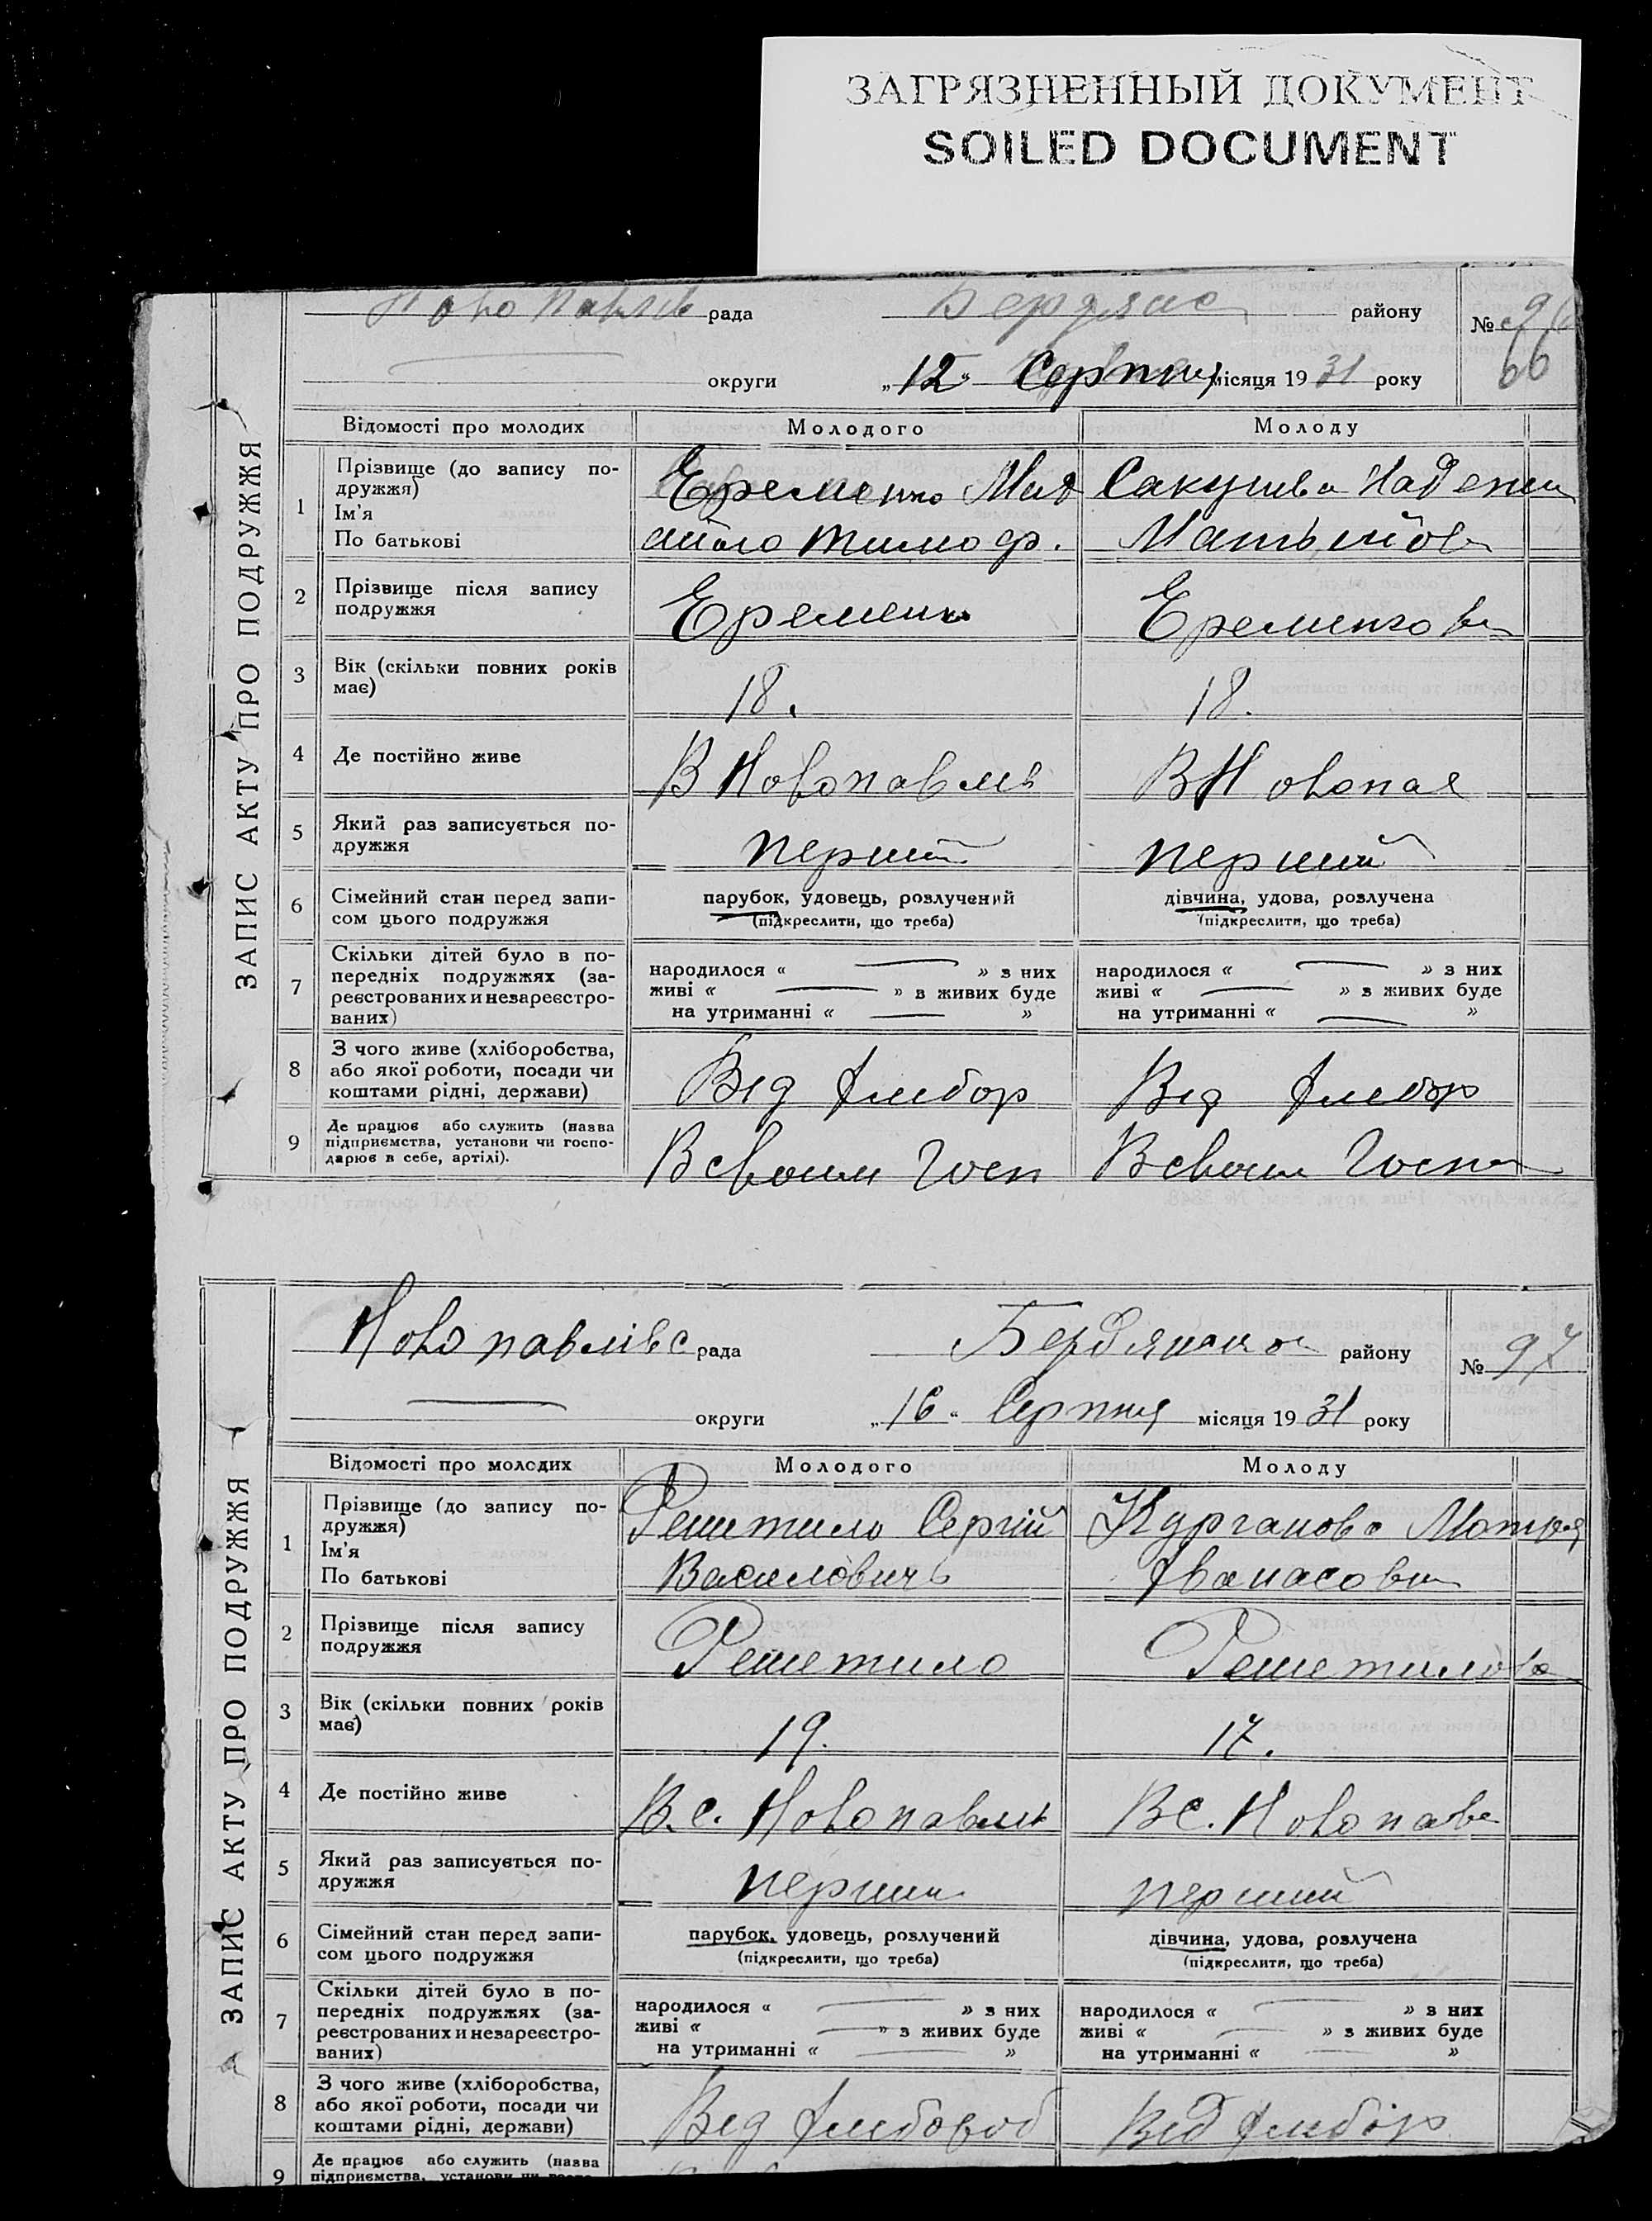 ЗАГРЯЗНЕННЫЙ ДОКУМЕНТ
SOILED DOCUMENT
рада району №
66
округи „12“ Серпня місяця 1931 року
ЗАПИС АКТУ ПРО ПОДРУЖЖЯ
Відомості про молодих Молодого Молоду
1 Прізвище (до запису по-
дружжя)
Ім'я
По батькові
Еременко
2 Прізвище після запису
подружжя
Еременко Еременкова
3 Вік (скільки повних років
має)
18. 18.
4 Де постійно живе
В Новопавль В Новопав
5 Який раз записується по-
дружжя
перший перший
6 Сімейний стан перед запи-
сом цього подружжя
парубок, удовець, розлучений дівчина, удова, розлучена
(підкреслити, що треба) (підкреслити, що треба)
7 Скільки дітей було в по-
передніх подружжях (за-
реєстрованих и незареєстро-
ваних)
народилося « » з них народилося « » з них
живі « » з живих буде живі « » з живих буде
на утриманні « » на утриманні « »
8 З чого живе (хліборобства,
або якої роботи, посади чи
коштами рідні, держави)
Від хлибор Від хлибор
9 Де працює або служить (назва
підприємства, установи чи госпо-
дарює в себе, артілі).
В своим Госп В своим Госп
Новопавлівс рада району № 97
округи „16“ Серпня місяця 1931 року
ЗАПИС АКТУ ПРО ПОДРУЖЖЯ
Відомості про молодих Молодого Молоду
1 Прізвище (до запису по-
дружжя)
Ім'я
По батькові
Решетило Сергій Курганова Мотря
Василовичь
2 Прізвище після запису
подружжя
Решетило Решетилова
3 Вік (скільки повних років
має)
19. 17.
4 Де постійно живе
В.С. Новопавль ВС. Новопав
5 Який раз записується по-
дружжя
перший перший
6 Сімейний стан перед запи-
сом цього подружжя
парубок, удовець, розлучений дівчина, удова, розлучена
(підкреслити, що треба) (підкреслити, що треба)
7 Скільки дітей було в по-
передніх подружжях (за-
реєстрованих и незареєстро-
ваних)
народилося « » з них народилося « » з них
живі « » з живих буде живі « » з живих буде
на утриманні « » на утриманні « »
8 З чого живе (хліборобства,
або якої роботи, посади чи
коштами рідні, держави)
Від хлибороб Від хлибор
9 Де працює або служить (назва
підприємства, установи чи госпо-